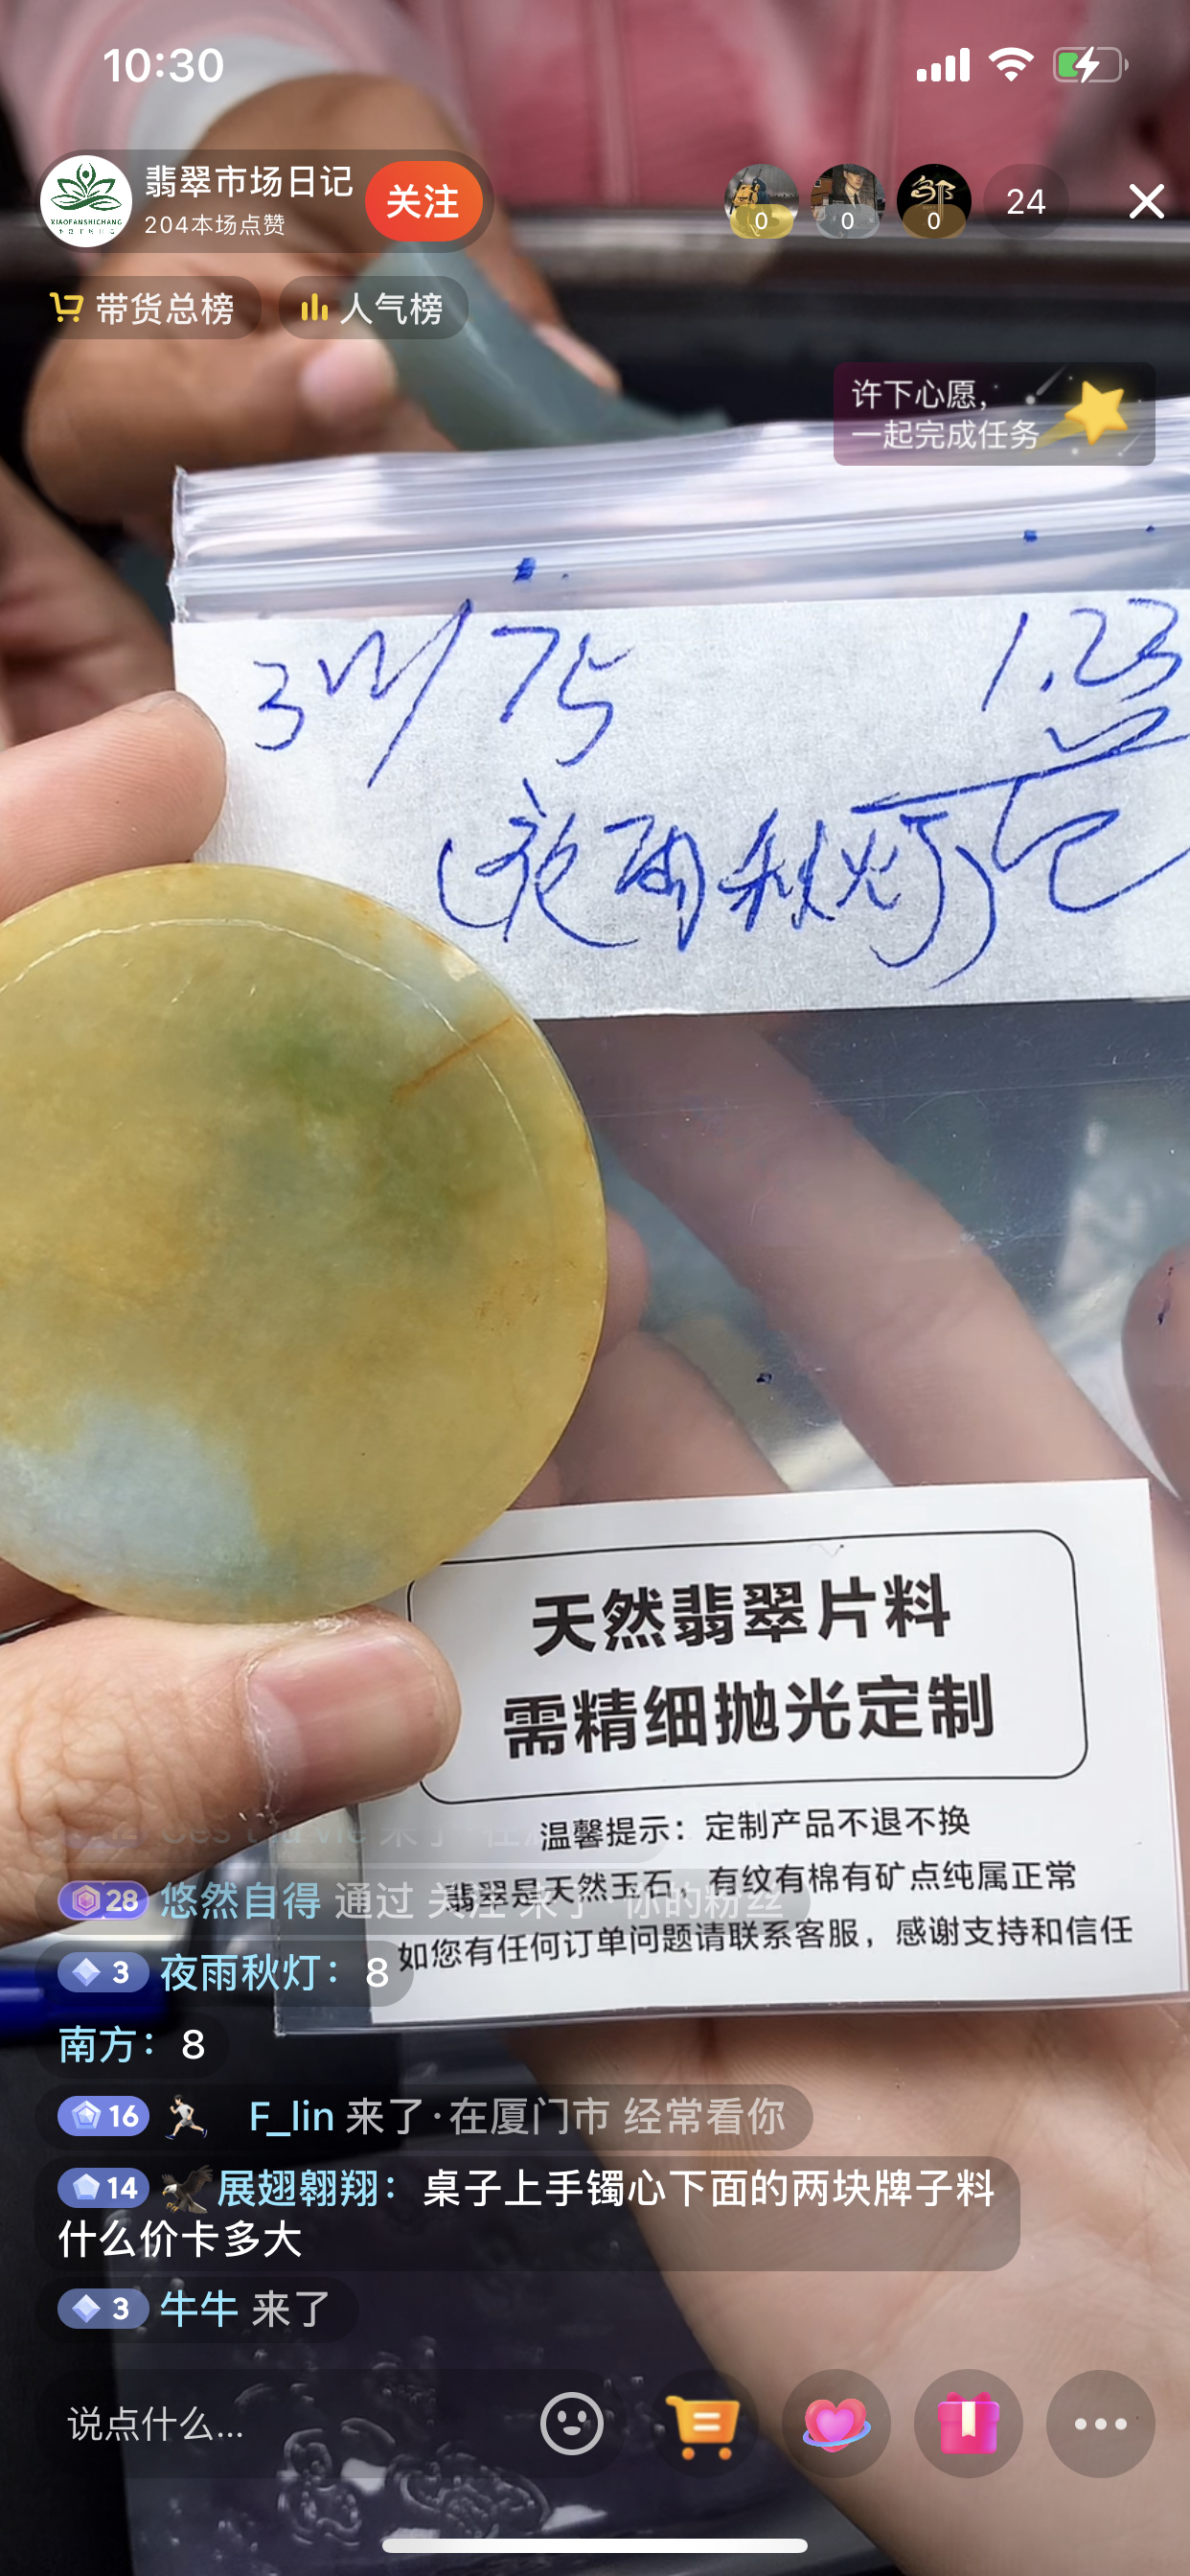 10:30
翡翠市场日记
204本场点赞
关注
XIAOFANSHICHANG
0
0
邹
0
24
带货总榜
人气榜
许下心愿，
一起完成任务
75
1.23
(夜雨秋灯)
天然翡翠片料
需精细抛光定制
温馨提示：定制产品不退不换
翡翠是天然玉石，有纹有棉有矿点纯属正常
如您有任何订单问题请联系客服，感谢支持和信任
28 悠然自得 通过 关注 来了·你的粉丝
3 夜雨秋灯：8
南方：8
16 F_lin 来了·在厦门市 经常看你
14 展翅翱翔：桌子上手镯心下面的两块牌子料
什么价卡多大
3 牛牛 来了
说点什么...